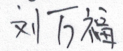 刘万福